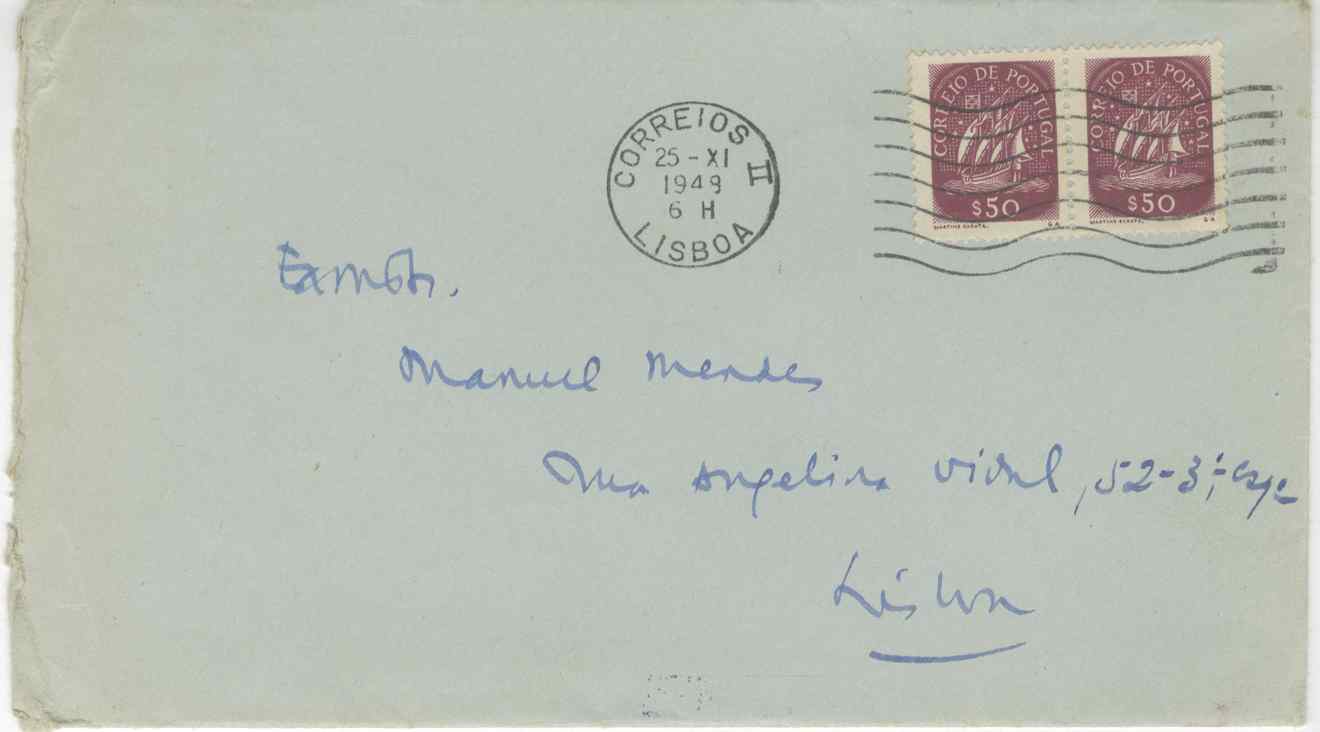 CORREIO DE PORTUGAL
$50
MARTINS BARATA.
CORREIO DE PORTUGAL
$50
MARTINS BARATA.
CORREIOS II
25 - XI
1949
6 H
LISBOA
Exmo Sr.
Manuel Mendes
Rua Angelina Vidal, 52-3º, esq.
Lisboa